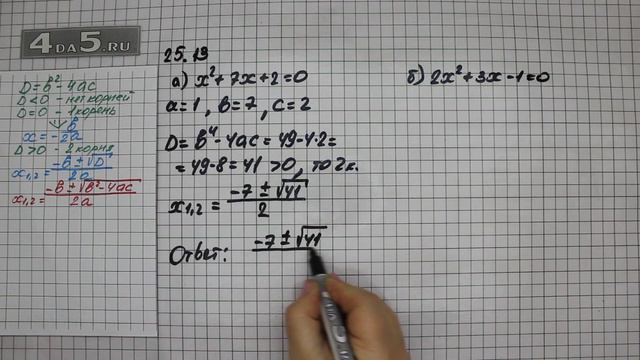 4DA5.RU
D=b²-4ac
D<0 - нет корней
D=0 - 1 корень
x=-b/2a
D>0 - 2 корня
x₁,₂=(-b±√D)/2a
x₁,₂=(-b±√b²-4ac)/2a
25.13
а) x²+7x+2=0
a=1, b=7, c=2
D=b⁴-4ac=49-4·2=
=49-8=41>0, то 2к.
x₁,₂=(-7±√41)/2
Ответ: -7±√41
б) 2x²+3x-1=0